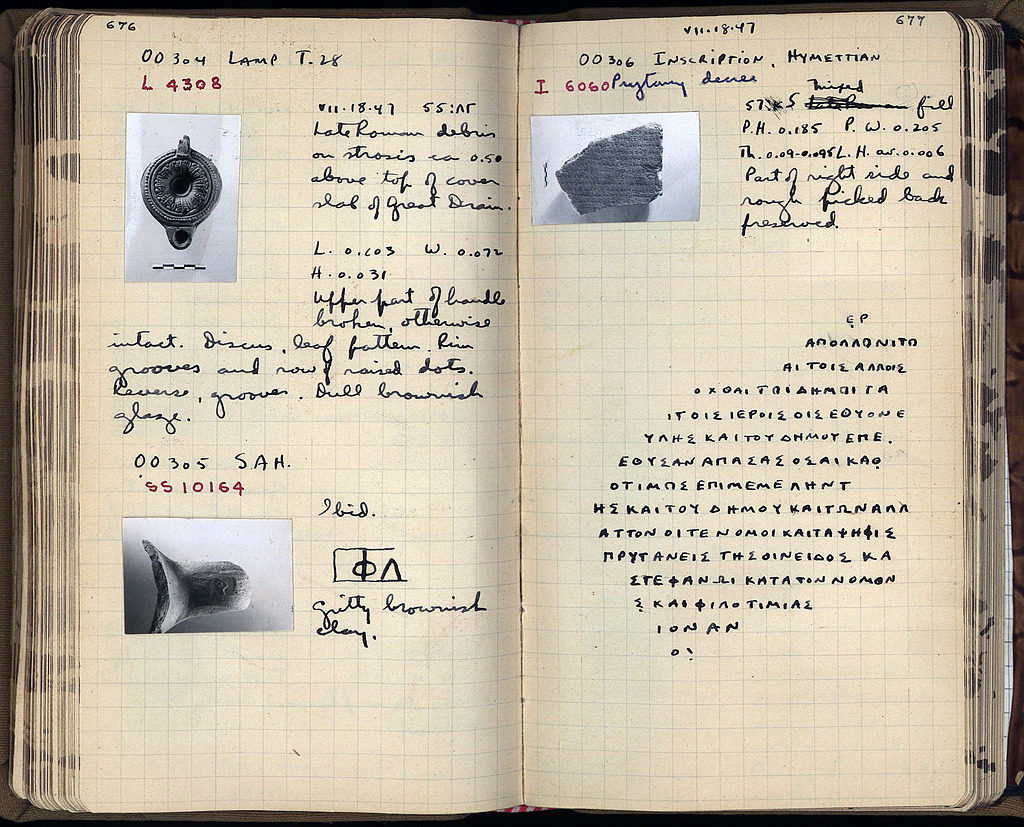 676
OO 304 LAMP T. 28
L 4308
VII.18.47 55:ΛΓ
Late Roman debris
on strosis ca 0.50
above top of cover
slab of Great Drain.
L. 0.103 W. 0.072
H. 0.031
Upper part of handle
broken, otherwise
intact. Discus, leaf pattern. Rim
grooves and row of raised dots.
Reverse, grooves. Dull brownish
glaze.
OO 305 S.A.H.
SS 10164
Ibid.
ΦΛ
gritty brownish
clay.
677
VII.18.47
OO 306 INSCRIPTION, HYMETTIAN
I 6060 Prytany decree
Mixed
fill
P.H. 0.185 P.W. 0.205
Th. 0.09-0.095 L.H. av. 0.006
Part of right side and
rough picked back
preserved.
ΕΡ
ΑΠΟΛΛΩΝΙΤΩ
ΑΙ ΤΟΙΣ ΑΛΛΟΙΣ
ΟΧΘΑΙ ΤΩΙ ΔΗΜΩΙ ΤΑ
ΙΤΟΙΣ ΙΕΡΟΙΣ ΟΙΣ ΕΘΥΟΝ Ε
ΥΛΗΣ ΚΑΙ ΤΟΥ ΔΗΜΟΥ ΕΠΕ.
ΕΘΥΣΑΝ ΑΠΑΣΑΣ ΟΣΑΙ ΚΑΘ
ΟΤΙΜΩΣ ΕΠΙΜΕΜΕΛΗΝΤ
ΗΣ ΚΑΙ ΤΟΥ ΔΗΜΟΥ ΚΑΙ ΤΩΝ ΑΛΛ
ΑΤΤΟΝ ΟΙ ΤΕ ΝΟΜΟΙ ΚΑΙ ΤΑ ΨΗΦΙΣ
ΠΡΥΤΑΝΕΙΣ ΤΗΣ ΟΙΝΕΙΔΟΣ ΚΑ
ΣΤΕΦΑΝΩΙ ΚΑΤΑ ΤΟΝ ΝΟΜΟΝ
Σ ΚΑΙ ΦΙΛΟΤΙΜΙΑΣ
ΙΟΝ ΑΝ